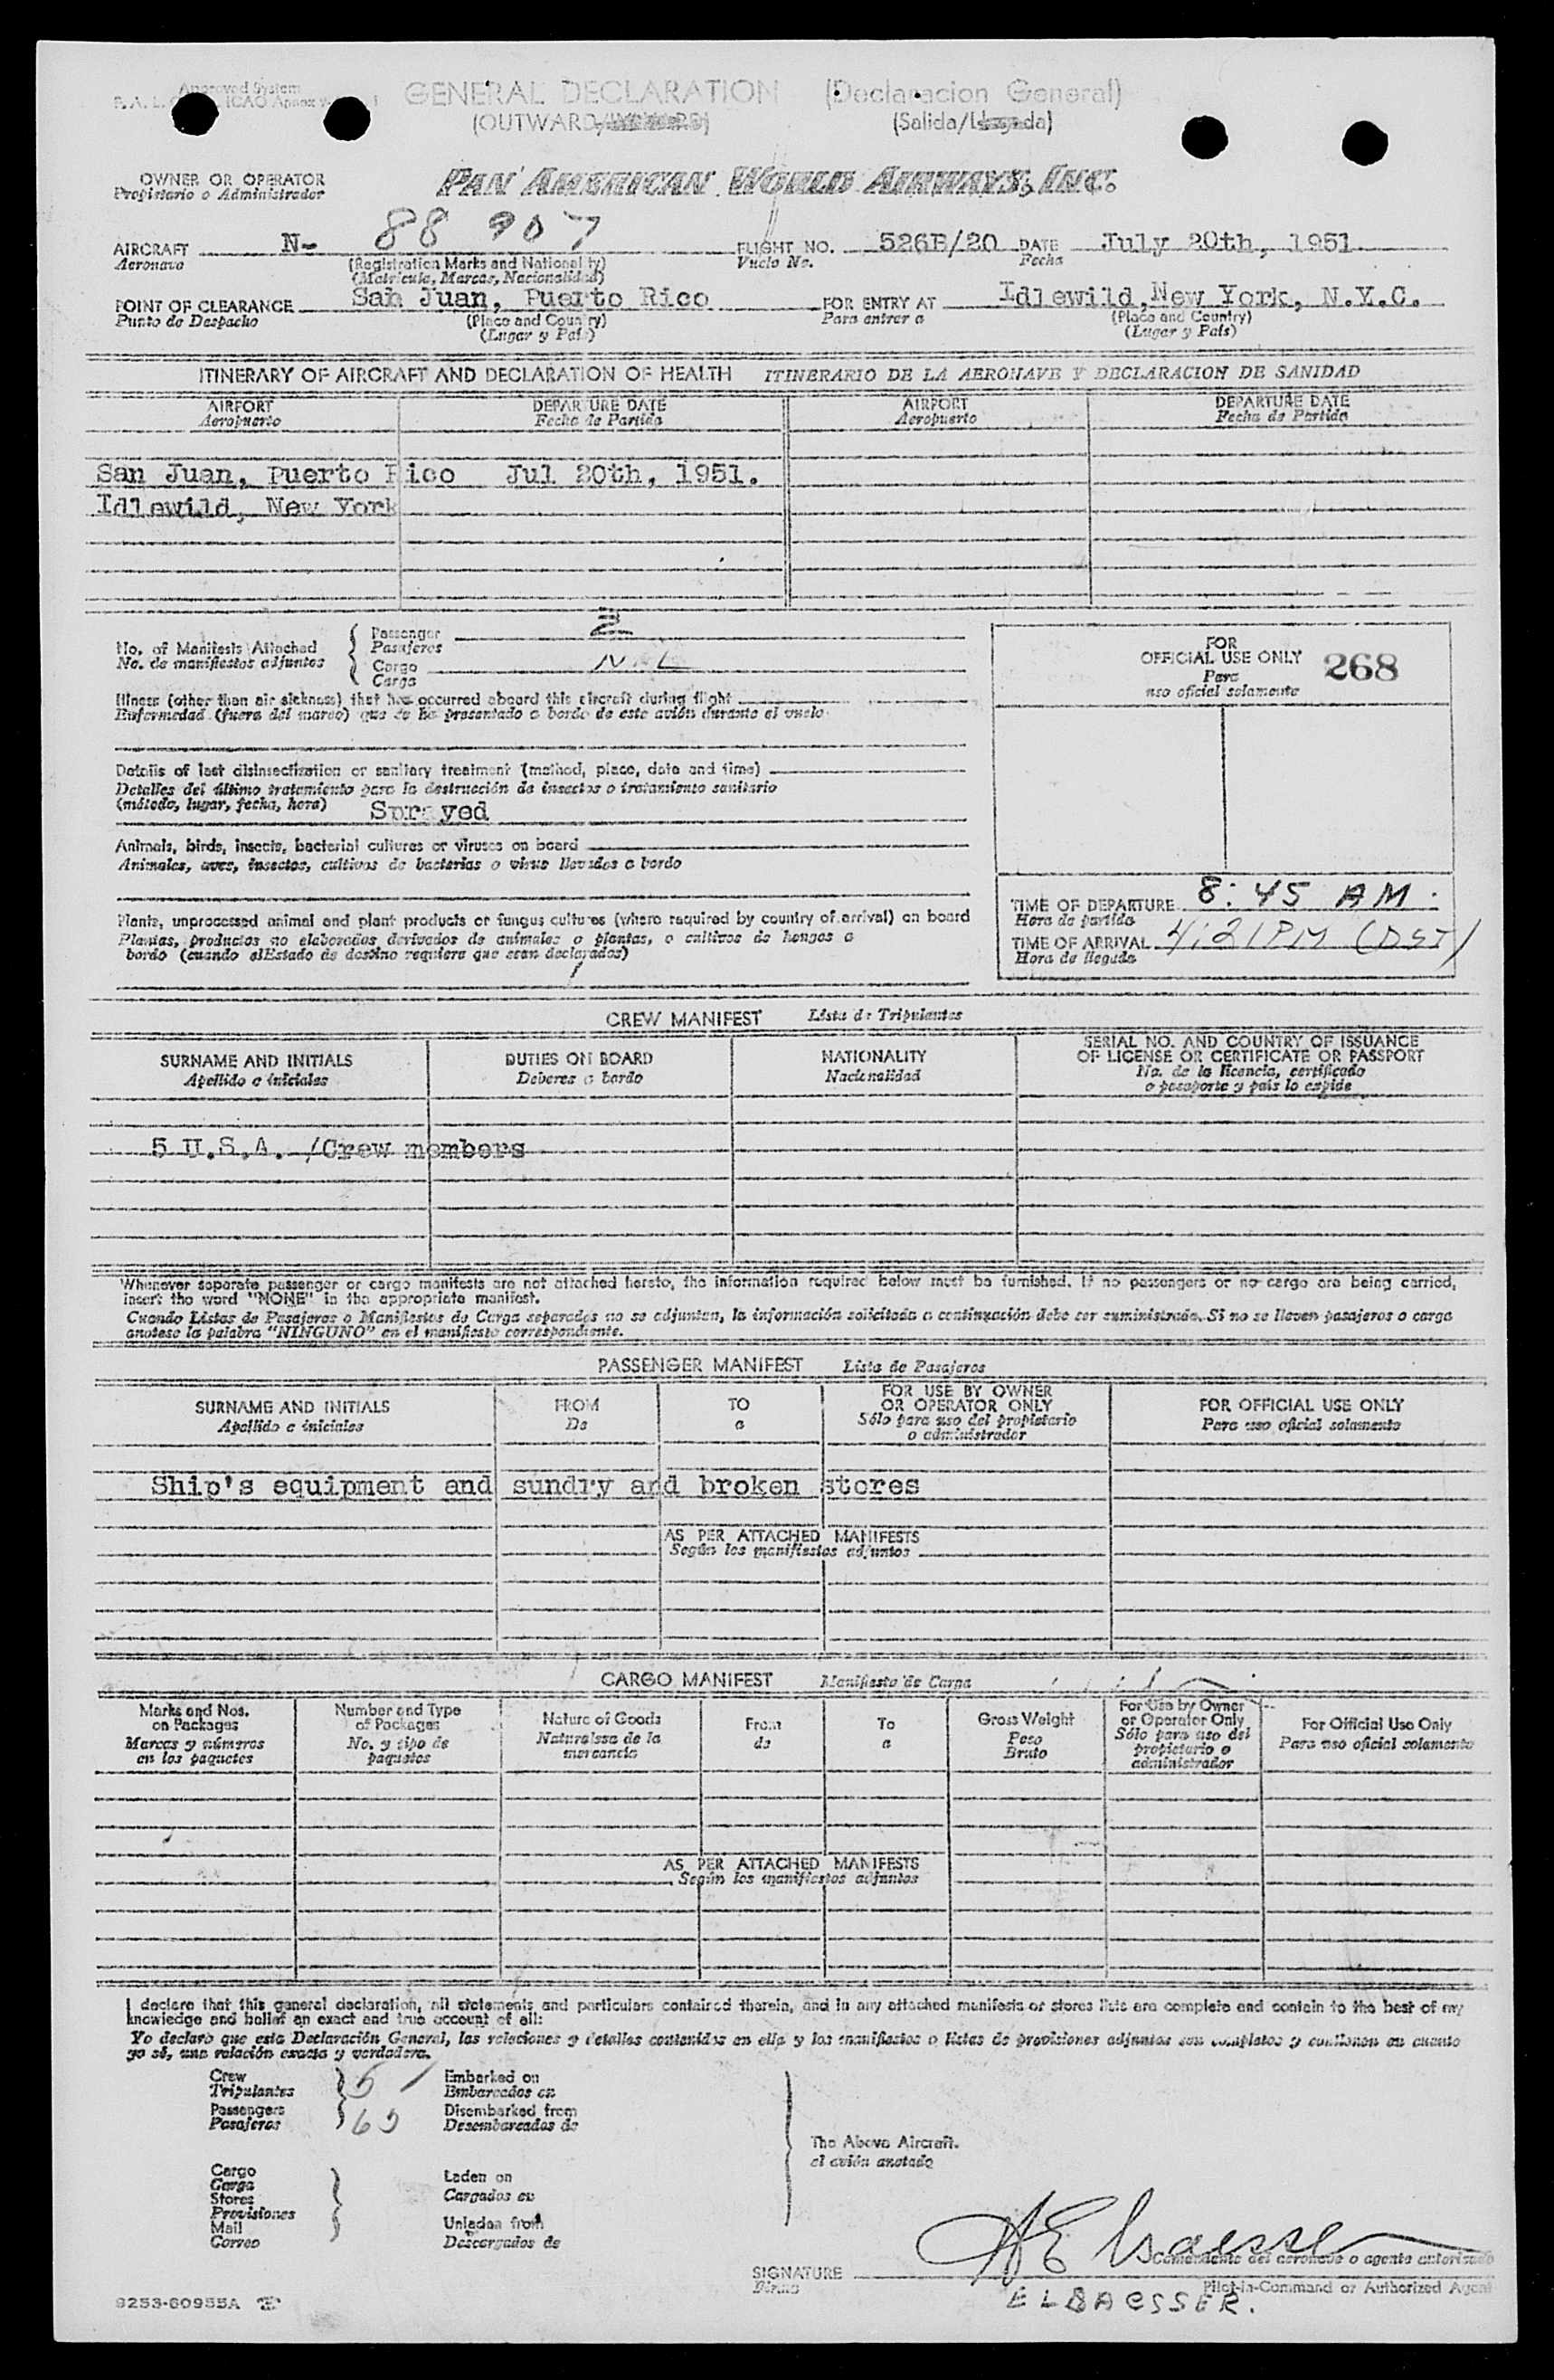 Approved System
GENERAL DECLARATION (Declaracion General)
(OUTWARD/ (Salida/
OWNER OR OPERATOR
Propietario o Administrador
PAN AMERICAN WORLD AIRWAYS, INC.
AIRCRAFT N- 88 907 FLIGHT NO. 526B/20 DATE July 20th, 1951.
Aeronave (Registration Marks and Nationality) Vuelo No. Fecha
(Matricula, Marcas, Nacionalidad)
POINT OF CLEARANCE San Juan, Puerto Rico FOR ENTRY AT Idlewild, New York, N.Y.C.
Punto de Despacho (Place and Country) Para entrar a (Place and Country)
(Lugar y País) (Lugar y País)
ITINERARY OF AIRCRAFT AND DECLARATION OF HEALTH ITINERARIO DE LA AERONAVE Y DECLARACION DE SANIDAD
AIRPORT DEPARTURE DATE AIRPORT DEPARTURE DATE
Aeropuerto Fecha de Partida Aeropuerto Fecha de Partida
San Juan, Puerto Rico Jul 20th, 1951.
Idlewild, New York
No. of Manifests Attached
No. de manifiestos adjuntos
Passenger 2
Pasajeros
Cargo NIL
Carga
FOR
OFFICIAL USE ONLY 268
Para
uso oficial solamente
Illness (other than air sickness) that has occurred aboard this aircraft during flight
Enfermedad (fuera del mareo) que se ha presentado a bordo de este avión durante el vuelo
Details of last disinsectization or sanitary treatment (method, place, date and time)
Detalles del último tratamiento para la destrucción de insectos o tratamiento sanitario
(método, lugar, fecha, hora) Sprayed
Animals, birds, insects, bacterial cultures or viruses on board
Animales, aves, insectos, cultivos de bacterias o virus llevados a bordo
Plants, unprocessed animal and plant products or fungus cultures (where required by country of arrival) on board
Plantas, productos no elaborados derivados de animales o plantas, o cultivos de hongos a
bordo (cuando elEstado de destino requiera que sean declarados)
TIME OF DEPARTURE 8:45 AM.
Hora de partida
TIME OF ARRIVAL 4:21PM (DST)
Hora de llegada
CREW MANIFEST Lista de Tripulantes
SURNAME AND INITIALS DUTIES ON BOARD NATIONALITY SERIAL NO. AND COUNTRY OF ISSUANCE
OF LICENSE OR CERTIFICATE OR PASSPORT
Apellido e iniciales Deberes a bordo Nacionalidad No. de la licencia, certificado
o pasaporte y país lo expide
5 U.S.A. /Crew members
Whenever separate passenger or cargo manifests are not attached hereto, the information required below must be furnished. If no passengers or no cargo are being carried,
insert the word "NONE" in the appropriate manifest.
Cuando Listas de Pasajeros o Manifiestos de Carga separados no se adjuntan, la información solicitada a continuación debe ser suministrada. Si no se llevan pasajeros o carga
anotese la palabra "NINGUNO" en el manifiesto correspondiente.
PASSENGER MANIFEST Lista de Pasajeros
SURNAME AND INITIALS FROM TO FOR USE BY OWNER
OR OPERATOR ONLY FOR OFFICIAL USE ONLY
Apellido e iniciales De a Sólo para uso del propietario
o administrador Para uso oficial solamente
Ship's equipment and sundry and broken stores
AS PER ATTACHED MANIFESTS
Según los manifiestos adjuntos
CARGO MANIFEST Manifiesto de Carga
Marks and Nos.
on Packages
Marcas y números
en los paquetes
Number and Type
of Packages
No. y tipo de
paquetes
Nature of Goods
Naturalesa de la
mercancia
From
de
To
a
Gross Weight
Peso
Bruto
For Use by Owner
or Operator Only
Sólo para uso del
propietario o
administrador
For Official Use Only
Para uso oficial solamente
AS PER ATTACHED MANIFESTS
Según los manifiestos adjuntos
I declare that this general declaration, all statements and particulars contained therein, and in any attached manifests or stores lists are complete and contain to the best of my
knowledge and belief an exact and true account of all:
Yo declaro que esta Declaración General, las relaciones y detalles contenidos en ella y los manifiestos o listas de provisiones adjuntos son completos y contienen en cuanto
yo sé, una relación exacta y verdadera.
Crew 5 Embarked on
Tripulantes Embarcados en
Passengers 65 Disembarked from
Pasajeros Desembarcados de
The Above Aircraft.
el avión anotado
Cargo
Carga
Stores
Provisiones
Mail
Correo
Laden on
Cargados en
Unladen from
Descargados de
SIGNATURE
Firma
Comandante del aeronave o agente autorizado
Pilot-in-Command or Authorized Agent
ELBAESSER.
9253-60955A